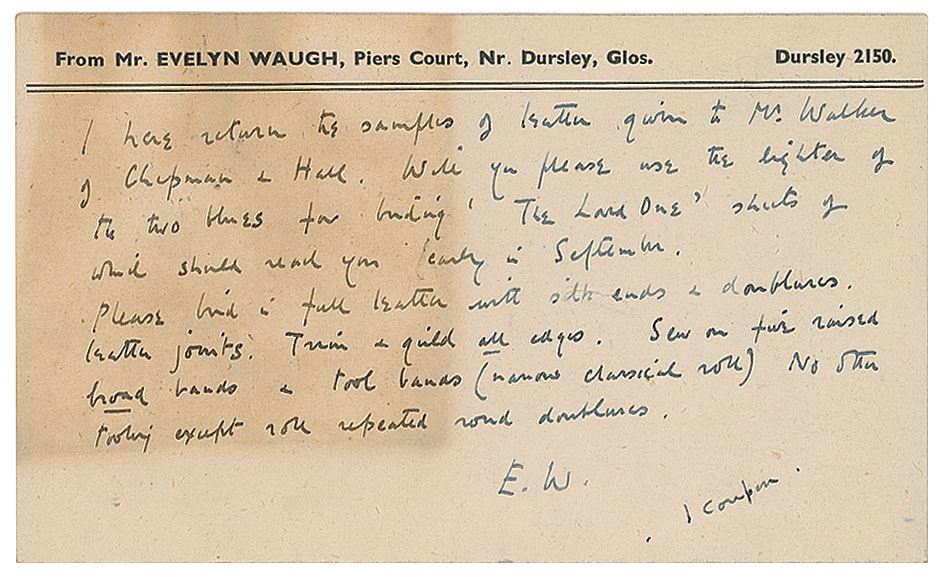 From Mr. EVELYN WAUGH, Piers Court, Nr. Dursley, Glos. Dursley 2150.
I here return the samples of leather given to Mr. Walker
of Chapman & Hall. Will you please use the lighter of
the two blues for binding 'The Loved One' sheets of
which should reach you early in September.
Please bind in full leather with silk ends & doublures.
leather joints. Trim & guild all edges. Sew on five raised
broad bands & tool bands (narrow classical roll) No other
tooling except roll repeated round doublures.
E. W.
1 coupon.